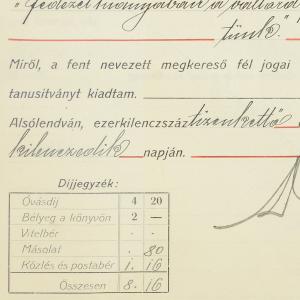 "fedezet hiányában a
tünk."
Miről, a fent nevezett megkereső fél jogai
tanusitványt kiadtam.
Alsólendván, ezerkilenczszáz tizenkettő
kilenczedik napján.
Dijjegyzék:
Óvásdij 4 20
Bélyeg a könyvön 2 —
Vitelbér . .
Másolat . 80
Közlés és postabér 1. 16
Összesen 8. 16